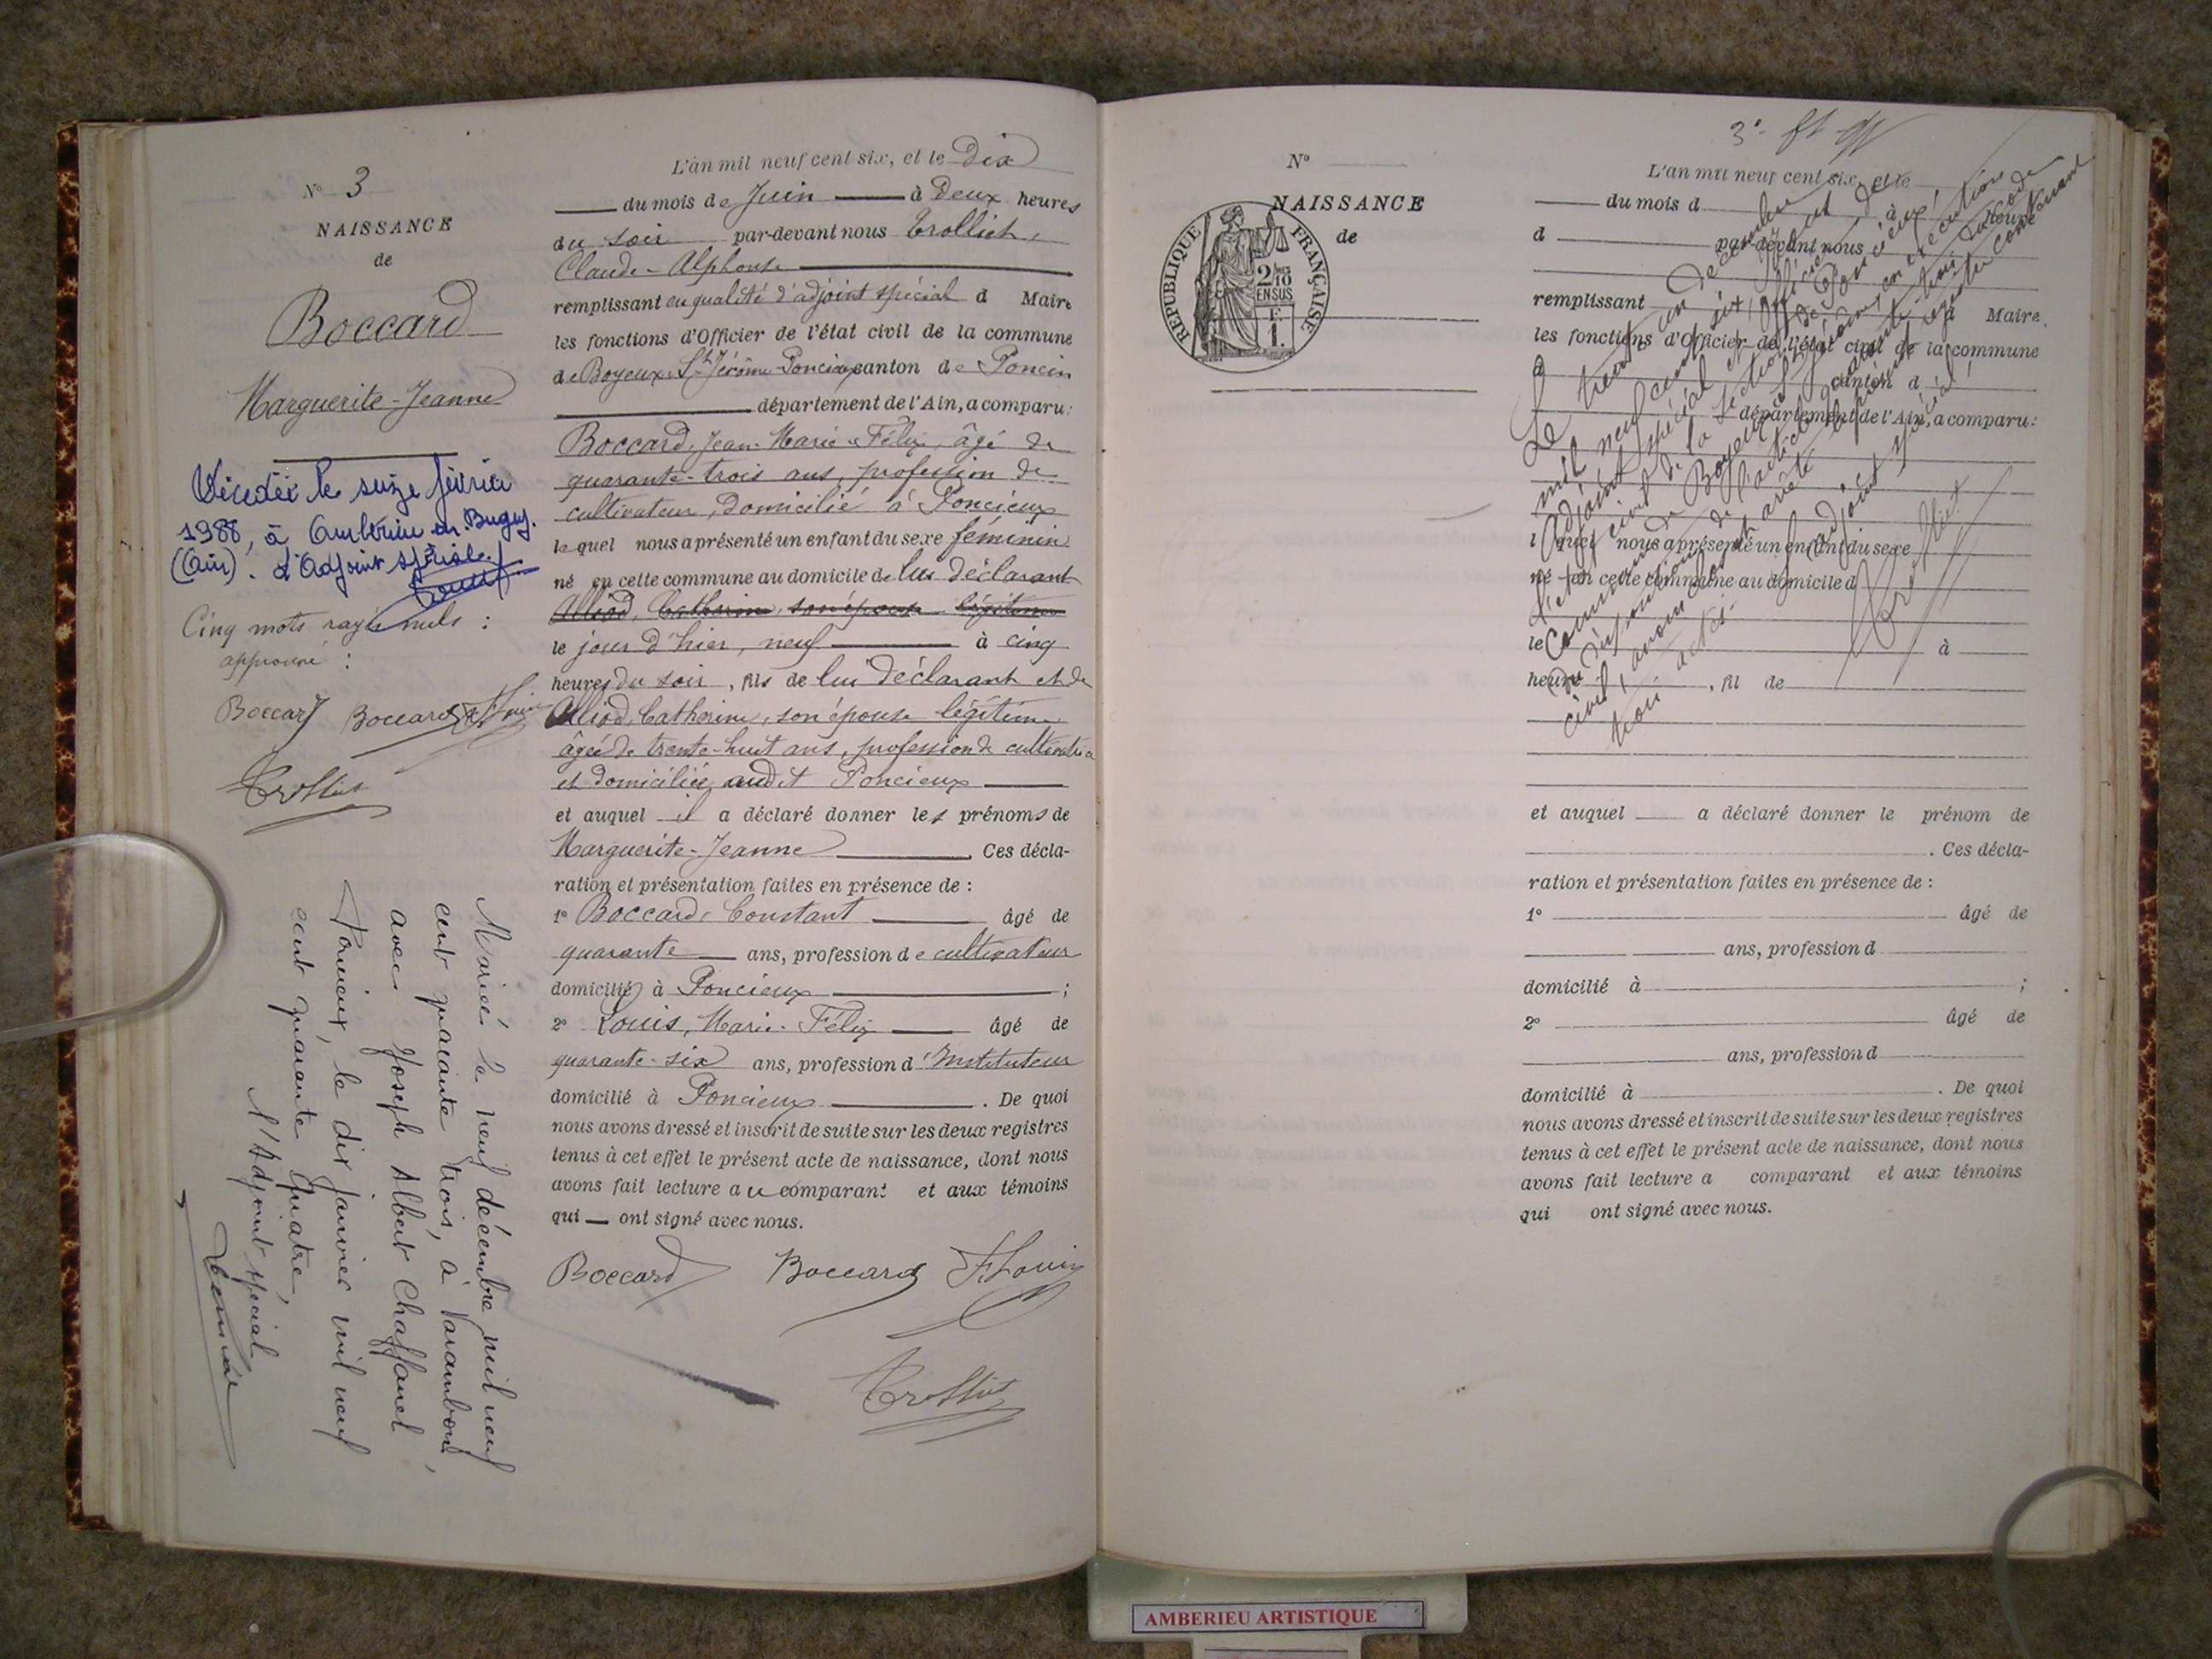 N° 3
NAISSANCE
de
Boccard
Marguerite-Jeanne
Décédée le seize février
1988, à Ambérieu en Bugey.
(Ain). L'Adjoint spéciale
Cinq mots rayés nuls :
approuvé :
Boccard Boccard F. Louis
Trolliet
Mariée le neuf décembre mil neuf
cent quarante trois, à Varambon,
avec Joseph Albert Chaffanel
Poncieux, le dix janvier mil neuf
cent quarante quatre,
l'Adjoint spécial
L'an mil neuf cent six, et le Dix
du mois de Juin à Deux heures
du soir par-devant nous Trolliet,
Claude-Alphonse
remplissant en qualité d'adjoint spécial d Maire
les fonctions d'Officier de l'état civil de la commune
de Boyeux-St Jérôme-Poncieux canton de Poncin
département de l'Ain, a comparu:
Boccard, Jean-Marie-Félix, âgé de
quarante-trois ans, profession de
cultivateur, domicilié à Poncieux
lequel nous a présenté un enfant du sexe féminin
né en cette commune au domicile de lui déclarant
Alliod, Catherine, son épouse légitime
le jour d'hier, neuf à cinq
heures du soir, fils de lui déclarant et de
Alliod, Catherine, son épouse légitime
âgée de trente-huit ans, profession de cultivatrice
et domiciliée audit Poncieux
et auquel il a déclaré donner les prénoms de
Marguerite-Jeanne. Ces décla-
ration et présentation faites en présence de :
1° Boccard, Constant âgé de
quarante ans, profession de cultivateur
domicilié à Poncieux ;
2° Louis, Marie-Félix âgé de
quarante-six ans, profession d'Instituteur
domicilié à Poncieux. De quoi
nous avons dressé et inscrit de suite sur les deux registres
tenus à cet effet le présent acte de naissance, dont nous
avons fait lecture au comparant et aux témoins
qui ont signé avec nous.
Boccard Boccard F. Louis
Trolliet
N°
NAISSANCE
de
REPUBLIQUE FRANÇAISE
2/10
EN SUS
F.
1.
L'an mil neuf cent six, et le
du mois d à heure
d par-devant nous
remplissant d Maire
les fonctions d'Officier de l'état civil de la commune
d canton d
département de l'Ain, a comparu:
l quel nous a présenté un enfant du sexe
né en cette commune au domicile d
le à
heure , fil de
et auquel a déclaré donner le prénom de
. Ces décla-
ration et présentation faites en présence de :
1° âgé de
ans, profession d
domicilié à ;
2° âgé de
ans, profession d
domicilié à . De quoi
nous avons dressé et inscrit de suite sur les deux registres
tenus à cet effet le présent acte de naissance, dont nous
avons fait lecture a comparant et aux témoins
qui ont signé avec nous.
Le trente un Décembre
mil neuf cent six,
l'Adjoint spécial et Officier de
l'état civil de la section de Poncieux,
Commune de Boyeux St Jérôme, en exécution
des dispositions de l'article quarante trois du code
civil, avons clos et arrêté le présent registre contenant
trois actes. L'adjoint spécial
Trolliet
AMBERIEU ARTISTIQUE